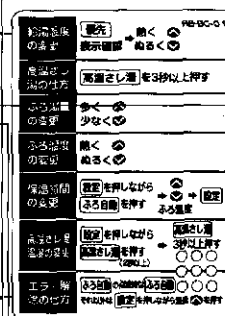 給湯温度の変更
優先 → 熱く
表示確認 ぬるく
高温さし湯の仕方
高温さし湯 を3秒以上押す
ふろ湯量の変更
多く
少なく
ふろ温度の変更
熱く
ぬるく
保温時間の変更
設定 を押しながら
ふろ自動 を押す
→ → 設定
ふろ温度
高温さし湯温度の変更
設定 を押しながら
高温さし湯 を押す
(2秒以上)
→ 高温さし湯
3秒以上押す
ふろ自動
設定 を押しながら を押す